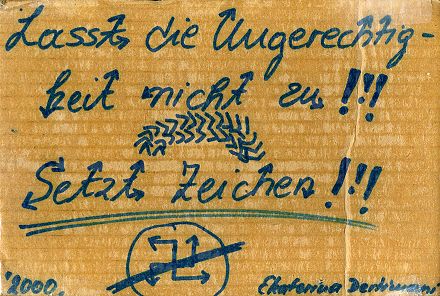 Lasst die Ungerechtig-
keit nicht zu!!!
Setzt Zeichen!!!
'2000. Ekaterina